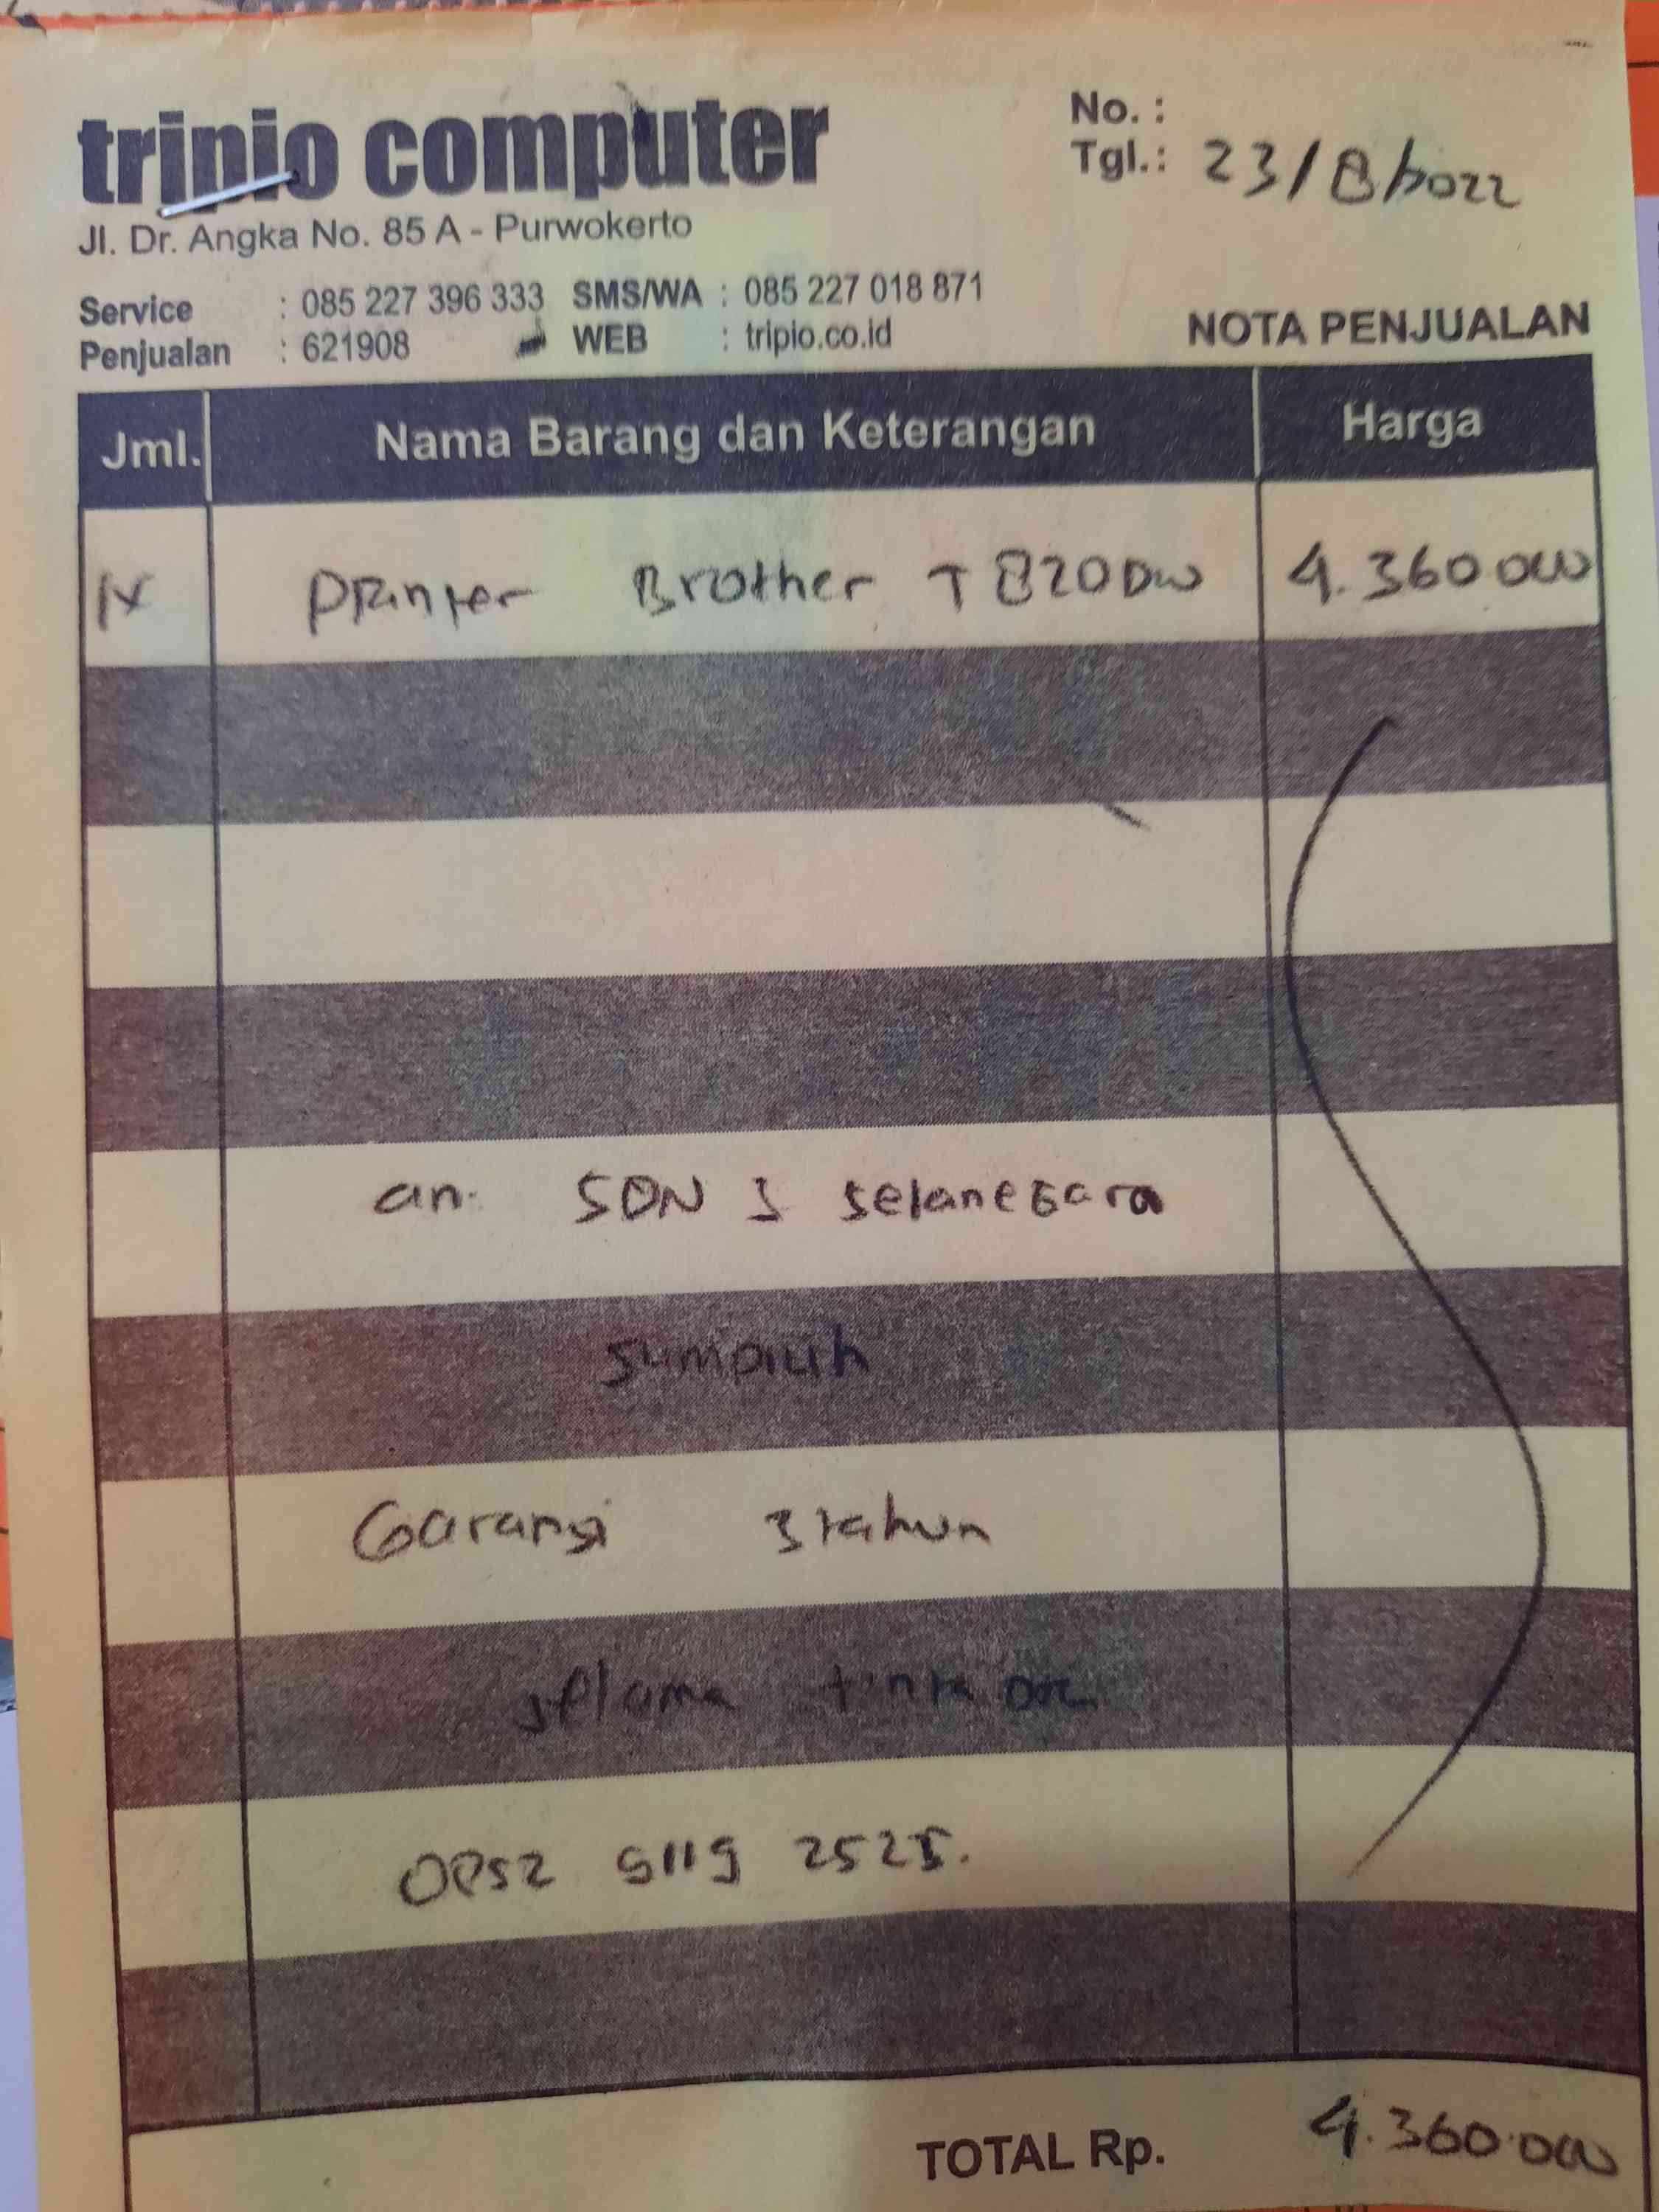 tripio computer
Jl. Dr. Angka No. 85 A - Purwokerto
No. :
Tgl.: 23/8/2022
Service : 085 227 396 333 SMS/WA : 085 227 018 871
Penjualan : 621908 WEB : tripio.co.id
NOTA PENJUALAN
Jml. Nama Barang dan Keterangan Harga
1x Printer Brother T 820DW 4.360.000
an. SDN 3 Selanegara
Sumpiuh
Garansi 3 tahun
selama tinta
2525.
TOTAL Rp. 4.360.000